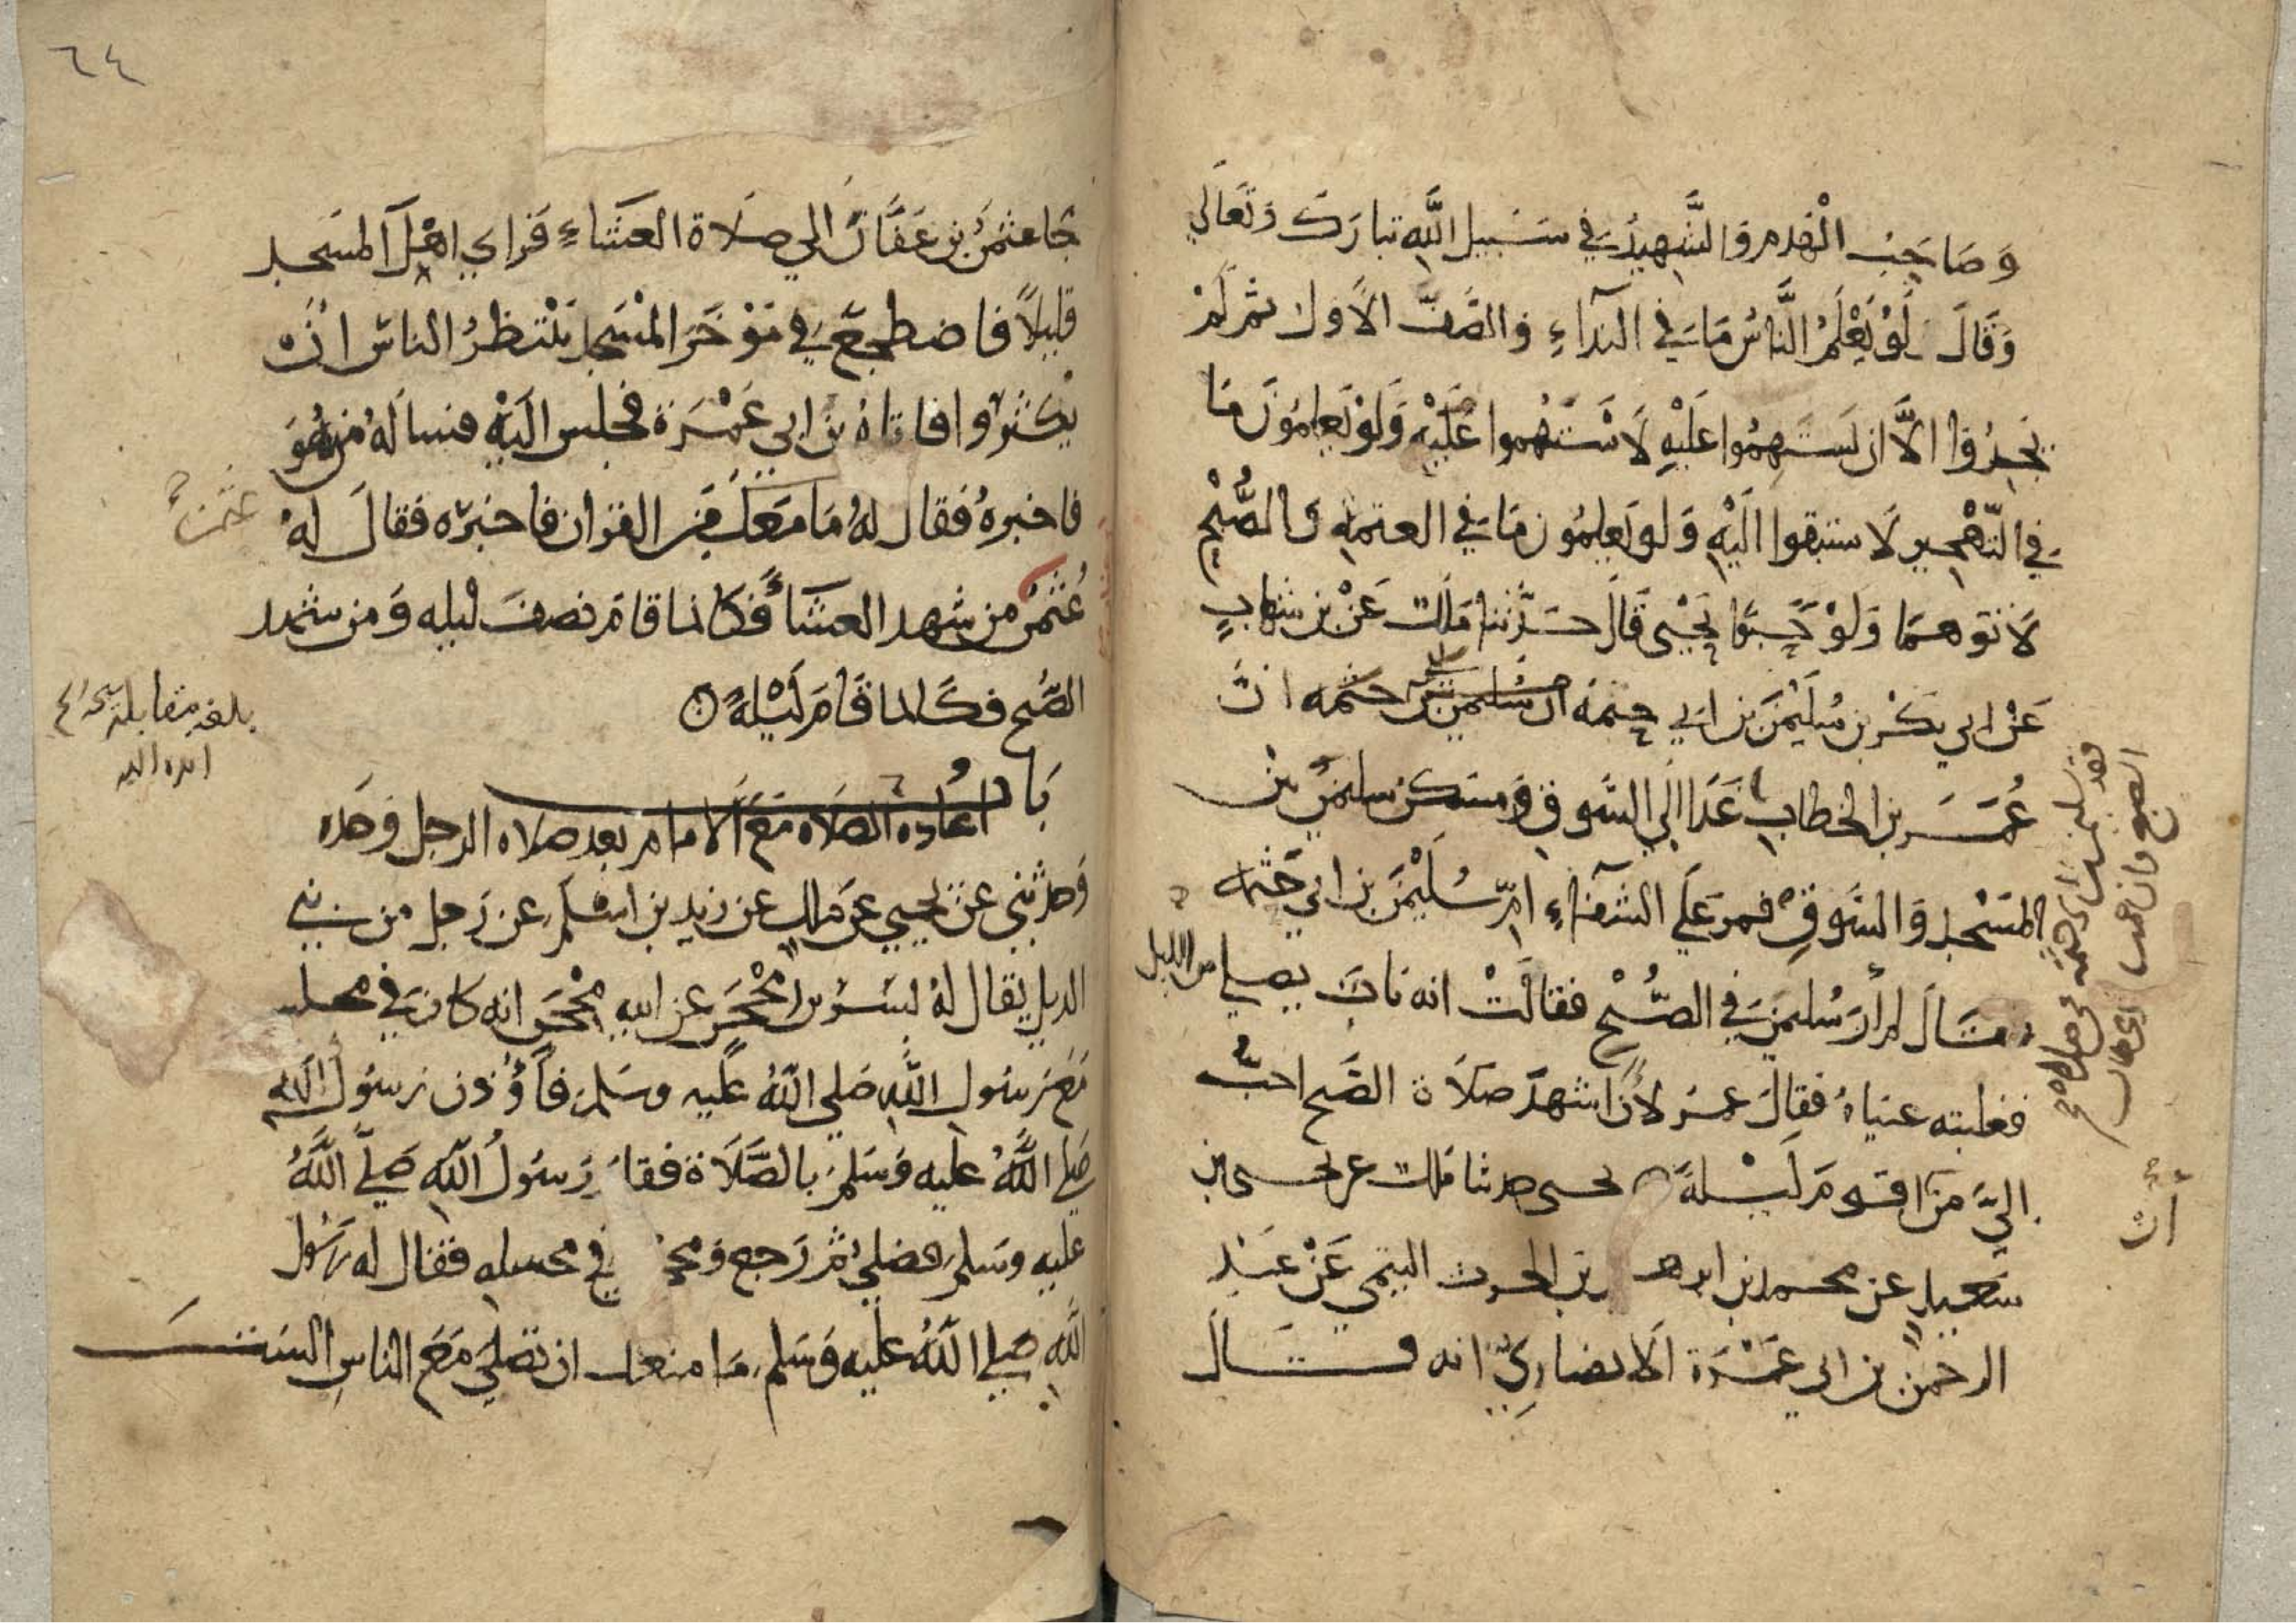 وَصَاحِبُ الْهَدمِ وَالشَّهِيدُ فِي سَبِيلِ اللَّهِ تبارَكَ وَتَعَالَي
وَقَالَ لَوْ يَعْلَمُ النَّاسُ مَا فِي النِدَآءِ وَالصَّفِّ الاَوَل ثم لَمْ
يَجِدُوا الاَّ ان يَستَهِمُوا عَلَيْهِ لَاسْتَهَمُوا عَلَيْهِ وَلَوْ يَعلمُونَ مَا
في التّهْجِيرِ لَاستبقوا الَيْهِ وَلو يَعلِمُون مَا في العتمهِ وَالصُّبْحِ
لاَتَوهمَا وَلَوْ حَبْوًا يَحْيى قَالَ حَدَّثنا ملك عَنْ بن شهابٍ
عَنْ ابي بكْر بن سُلَيْمَنَ بن ابي حثمَه ان سُلَيمن بن حثمه انَّ
عُمَــر بن الخطابِ غَدَا الَي السُّوقِ وَمسكن سليمَن بَيْن
المَسْجِد وَالسُّوقِ فمر عَلَي الشفآءِ امِّ سُلَيْمَن بن ابي حَثمه
فقالَ لم أرَ سُليمَن في الصُّبْح فقالَتْ انه بَاتَ يصلي من الليل
فغلبته عيناهُ فقالَ عمرُ لاَنْ اشهدَ صَلاَة الصُّبح احبُّ
الَيَّ مِنَ ان اقوم لَيْلةً يحيى حدثنا ملك عن يحيى بن
سَعيدٍ عن محمد بن ابرهيم بن الحرث التيمي عَنْ عَبْدِ
الرحمن بن ابي عَمْرَة الاَنصَاريِّ انه قَــالَ
فقد سليمن بن ابي حثمه في صلاة
الصبح وان عمر
أن
٦٤
جَا عثمَنُ بن عَفَّانَ الي صَلاَة العشَاءِ فَرَاي اهْلَ المَسجد
قليلاً فاضطجعَ في مؤخرِ المَسْجِد يَنْتظرُ الناسَ انْ
يكثرُوا فاتاهُ بن ابي عَمْرَة فجلس الَيْهِ فسالَهُ مَن هُوَ
فاخبرهُ فقال لهُ مَا مَعَكَ مِنَ القران فاخبَره فقالَ لَهُ
عُثمَنُ من شهد العشَاءَ فَكَانما قامَ نصفَ ليله وَمن شهد
الصُّبح فكَانما قَامَ لَيْلةً
عثمن
بلغت مقابلة
ايده الله
بَابُ
اعَاده الصَلاه مَعَ الاَمام بعد صلاه الرجل وَحْدَه
وَحدثني عن يحيي عَن ملكٍ عن زيد بن اسْلَم عن رَجل من بني
الديل يقال لهُ بُسْرُ بن مِحْجَنٍ عن ابيه مِحْجَنٍ انه كان في مجلس
مَعَ رَسُول اللَّهِ صَلي اللَّهُ عليه وسَلم فأُؤذن رسُولَ اللَّهِ
صَلي اللَّهُ عليه وَسَلم بالصَّلاَة فقام رَسُولُ اللَّهِ صَلي اللَّهُ
عليه وسَلم فصَلي ثم رَجع ومحجن في مجلسه فقال له رسُول
اللَّهِ صَلي اللَّهُ عليه وَسَلم مَا منعك ان تصَليَ مَعَ الناسِ السْتَ